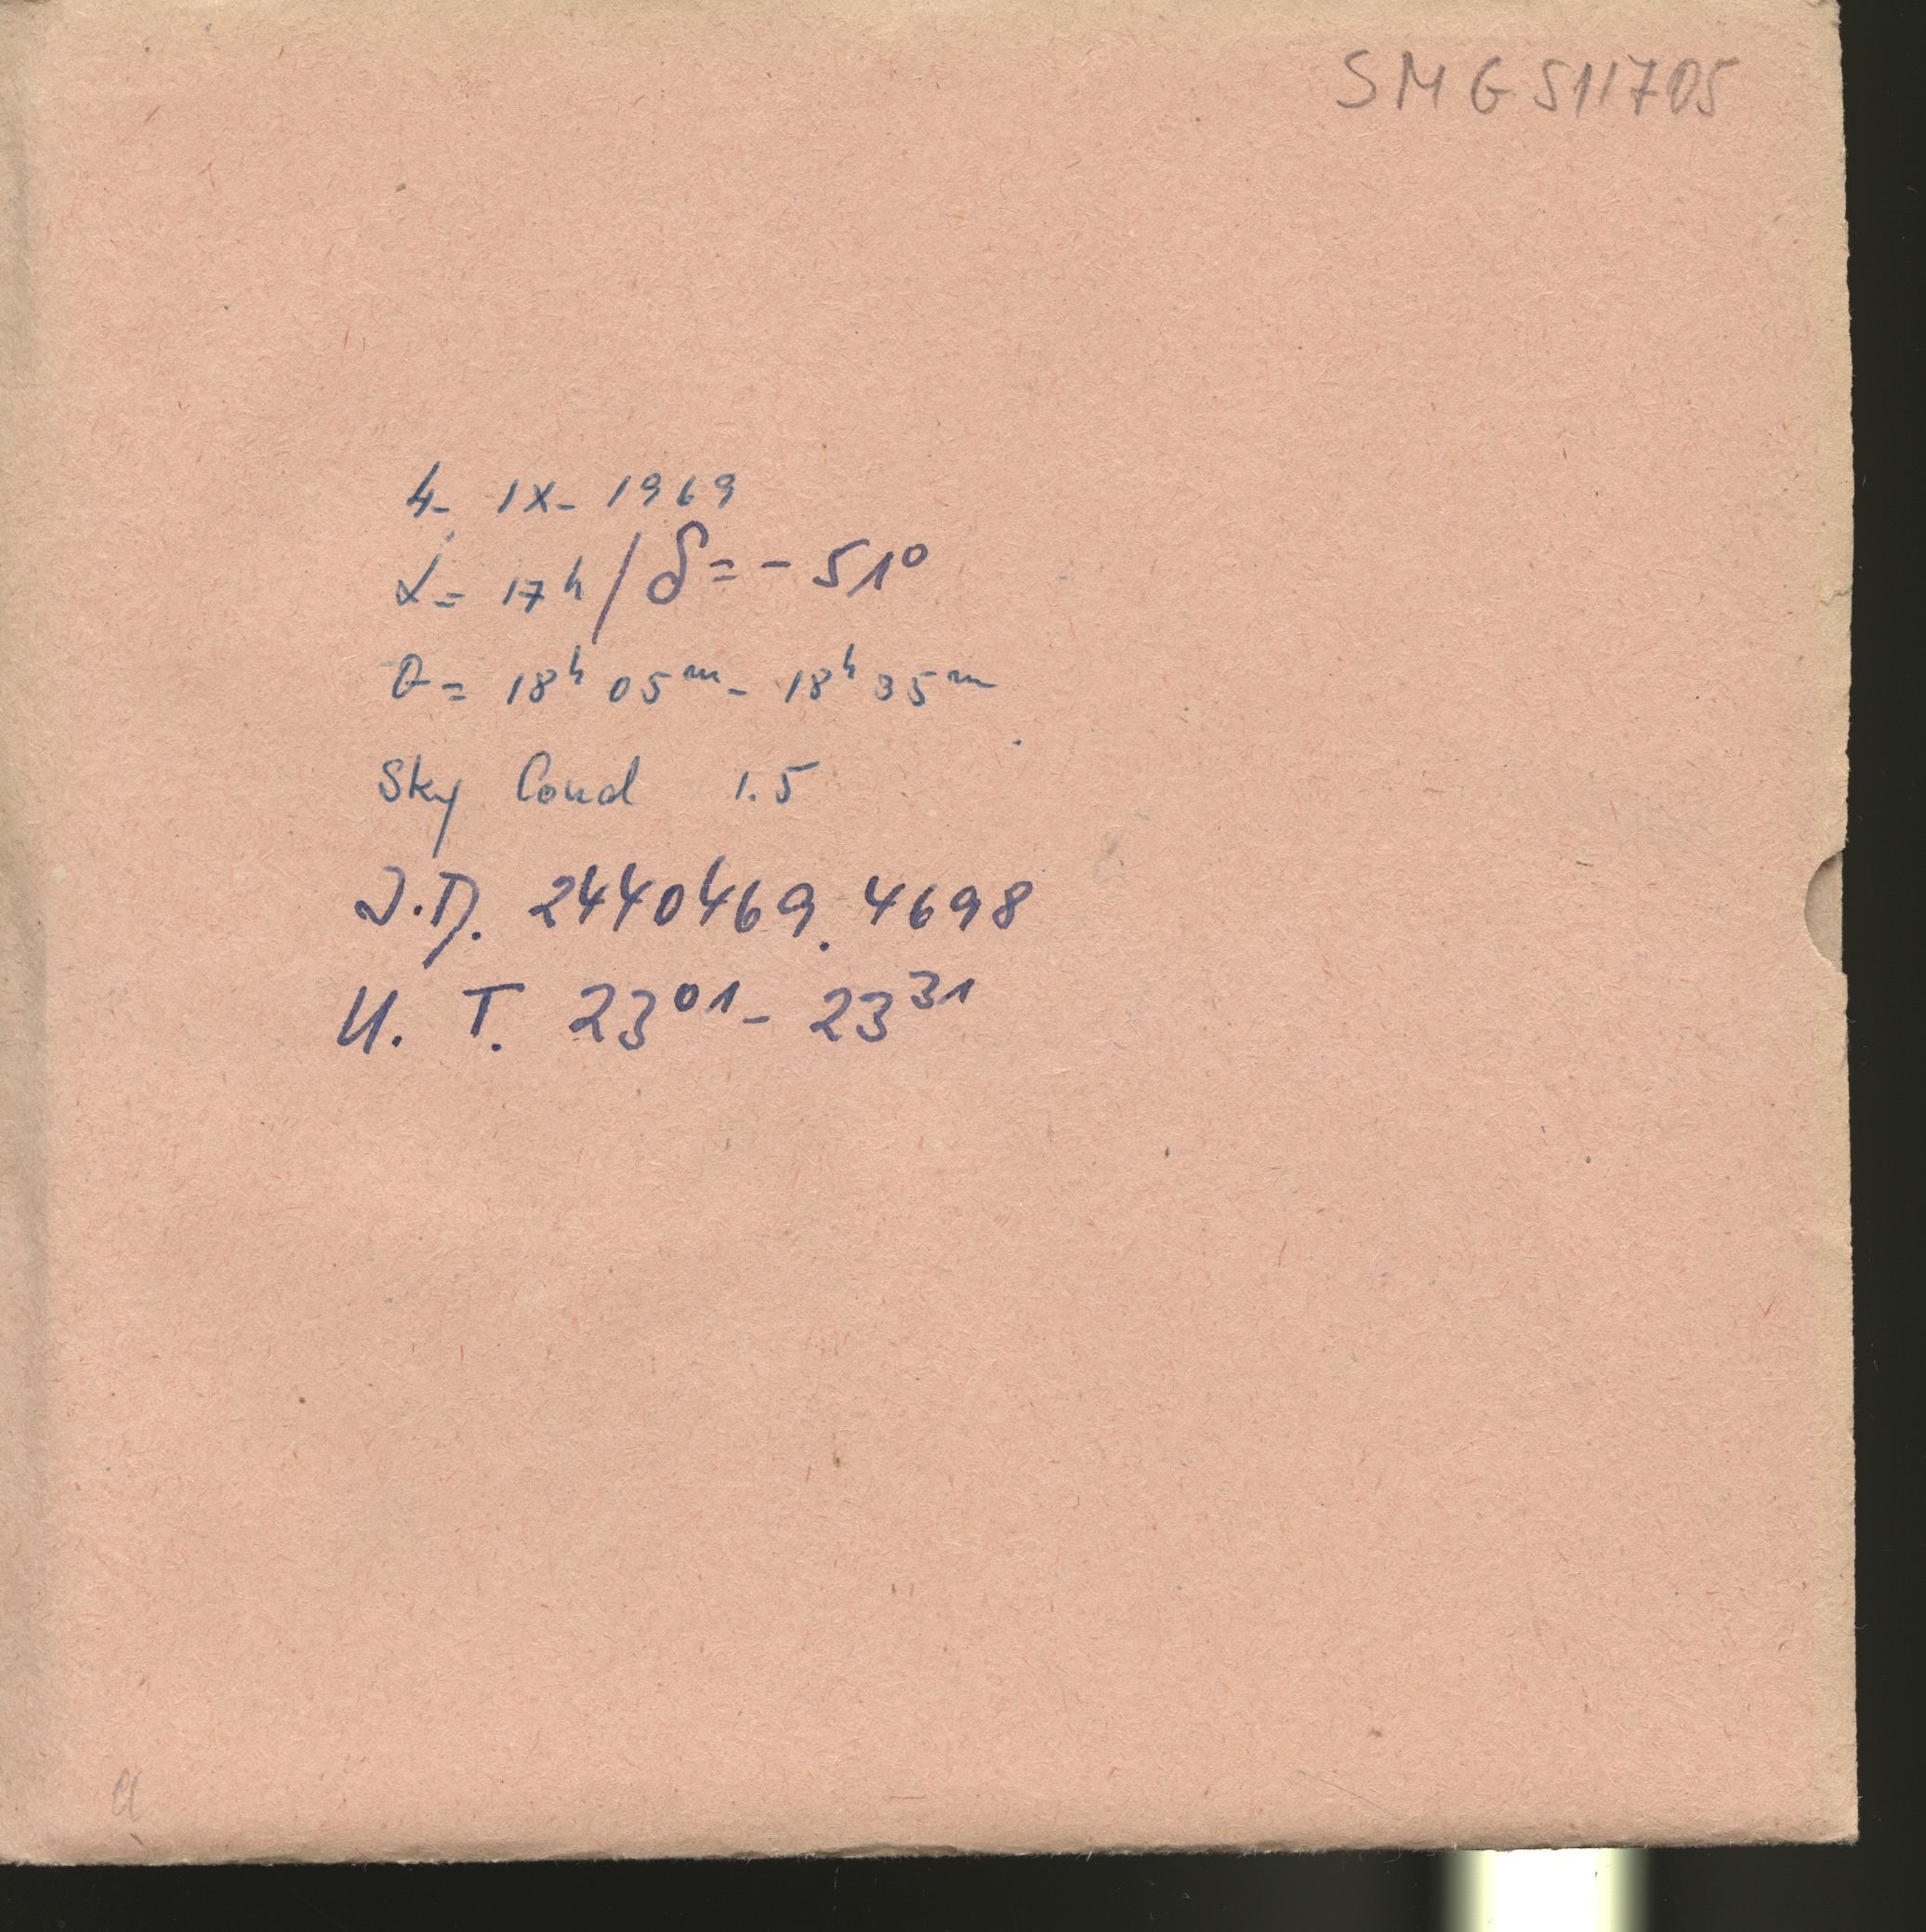 SMG511705
4- IX- 1969
α= 17h / δ= - 51°
θ= 18h 05m - 18h 35m
Sky Cond 1.5
J.D. 2440469.4698
U. T. 23 01 - 23 31